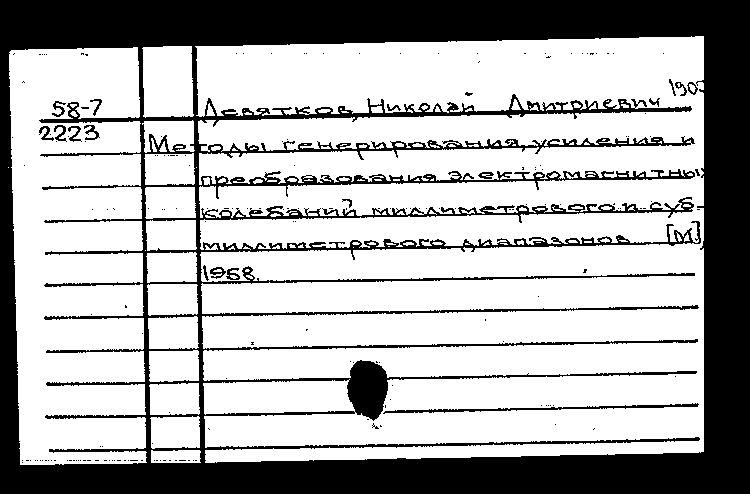 58-7 Девятков, Николай Дмитриевич 1907
2223 Методы генерирования, усиления и
преобразования электромагнитных
колебаний миллиметрового и суб-
миллиметрового диапазонов [М],
1958.